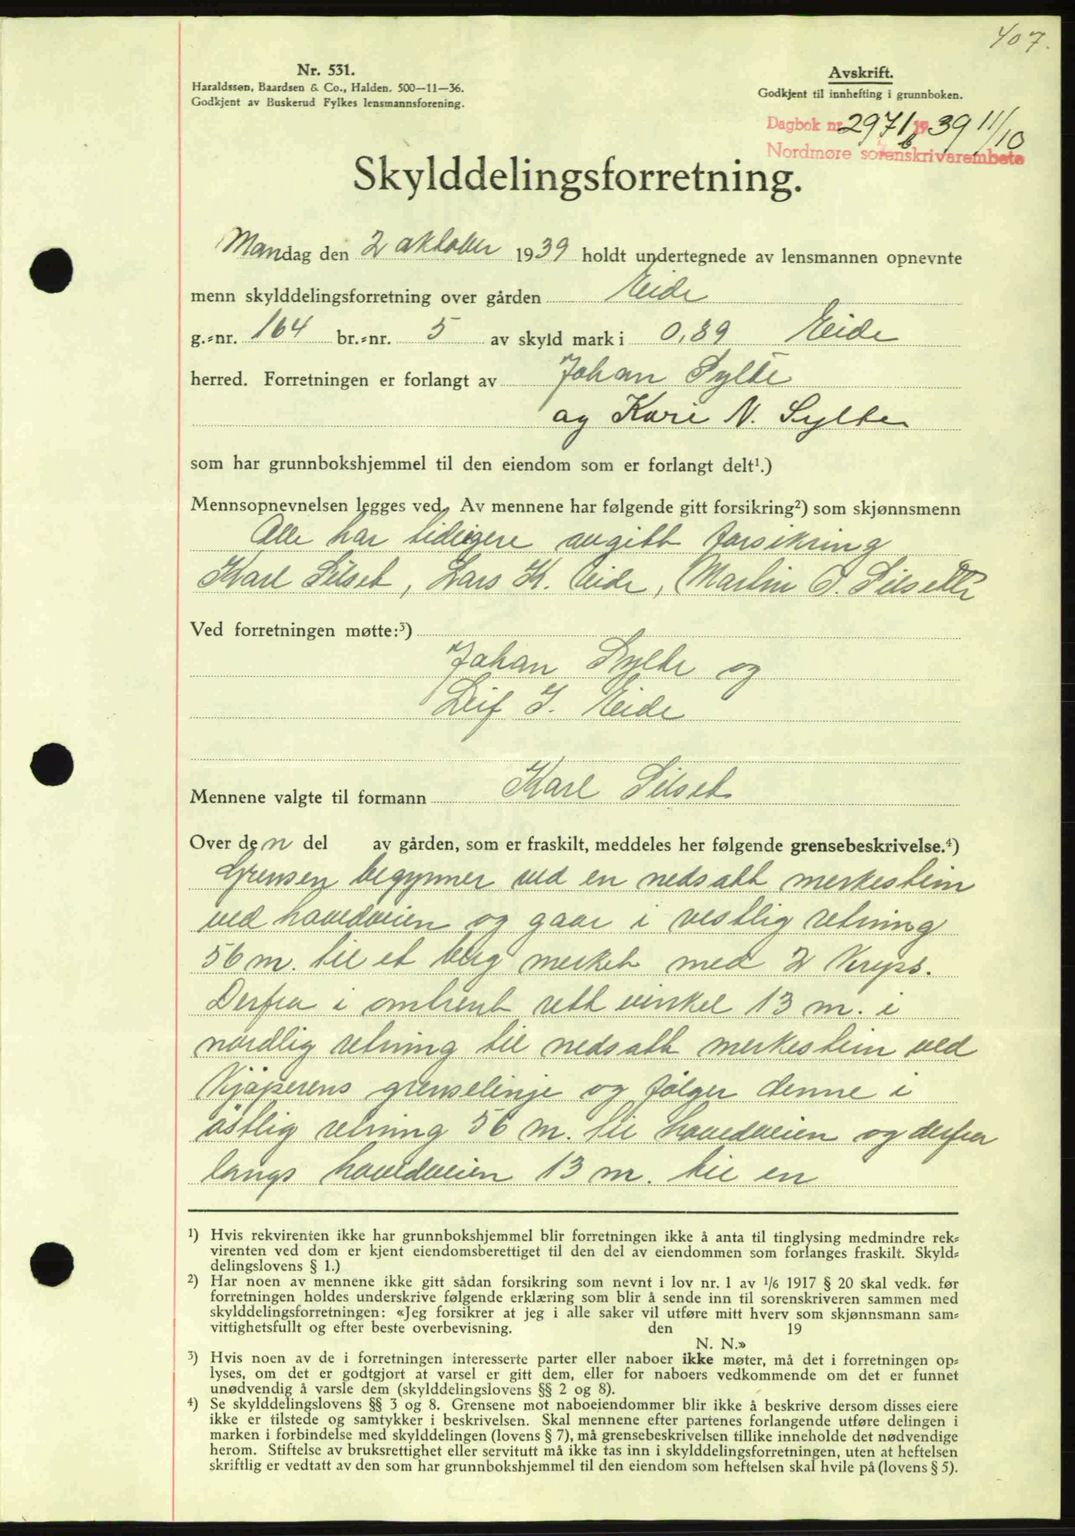 407.
Nr. 531.
Haraldssøn, Baardsen & Co., Halden. 500—11—36.
Godkjent av Buskerud Fylkes lensmannsforening.
Avskrift.
Godkjent til innhefting i grunnboken.
Dagbok nr. 2971 1939 11/10
Nordmøre sorenskrivarembete
Skylddelingsforretning.
Mandag den 2 oktober 1939 holdt undertegnede av lensmannen opnevnte
menn skylddelingsforretning over gården Eide
g.-nr. 164 br.-nr. 5 av skyld mark i 0,89 Eide
herred. Forretningen er forlangt av Johan Sylte
og Kari N. Sylte
som har grunnbokshjemmel til den eiendom som er forlangt delt¹.)
Mennsopnevnelsen legges ved. Av mennene har følgende gitt forsikring²) som skjønnsmenn
Alle har tidligere avgitt forsikring
Karl Silset, Lars K. Eide, Martin P. Silseth
Ved forretningen møtte:³)
Johan Sylte og
Leif J. Eide
Mennene valgte til formann Karl Silset
Over den del av gården, som er fraskilt, meddeles her følgende grensebeskrivelse.⁴)
Grensen begynner ved en nedsatt merkestein
ved hovedveien og gaar i vestlig retning
56 m. til et berg merket med 2 kryss.
Derfra i omtrent rett vinkel 13 m. i
nordlig retning til nedsatt merkestein ved
Kjøperens grenselinje og følger denne i
østlig retning 56 m. til hovedveien og derfra
langs hovedveien 13 m. til en
¹) Hvis rekvirenten ikke har grunnbokshjemmel blir forretningen ikke å anta til tinglysing medmindre rek-
virenten ved dom er kjent eiendomsberettiget til den del av eiendommen som forlanges fraskilt. Skyld-
delingslovens § 1.)
²) Har noen av mennene ikke gitt sådan forsikring som nevnt i lov nr. 1 av 1/6 1917 § 20 skal vedk. før
forretningen holdes underskrive følgende erklæring som blir å sende inn til sorenskriveren sammen med
skylddelingsforretningen: «Jeg forsikrer at jeg i alle saker vil utføre mitt hverv som skjønnsmann sam-
vittighetsfullt og efter beste overbevisning. den 19
N. N.»
³) Hvis noen av de i forretningen interesserte parter eller naboer ikke møter, må det i forretningen op-
lyses, om det er godtgjort at varsel er gitt dem, eller for naboers vedkommende om det er funnet
unødvendig å varsle dem (skylddelingslovens §§ 2 og 8).
⁴) Se skylddelingslovens §§ 3 og 8. Grensene mot naboeiendommer blir ikke å beskrive dersom disses eiere
ikke er tilstede og samtykker i beskrivelsen. Skal mennene efter partenes forlangende utføre delingen i
marken i forbindelse med skylddelingen (lovens § 7), må grensebeskrivelsen tillike inneholde det nødvendige
herom. Stiftelse av bruksrettighet eller servitutt må ikke tas inn i skylddelingsforretningen, uten at heftelsen
skriftlig er vedtatt av den som har grunnbokshjemmel til den eiendom som heftelsen skal hvile på (lovens § 5).